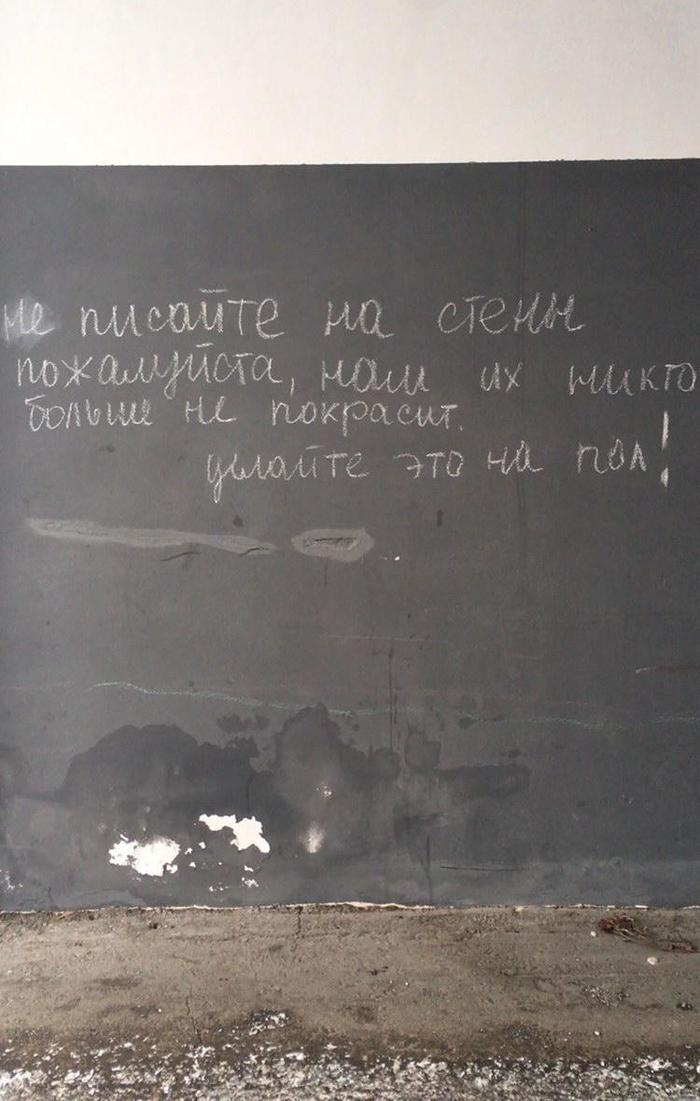 не писайте на стены
пожалуйста, нам их никто
больше не покрасит.
делайте это на пол!